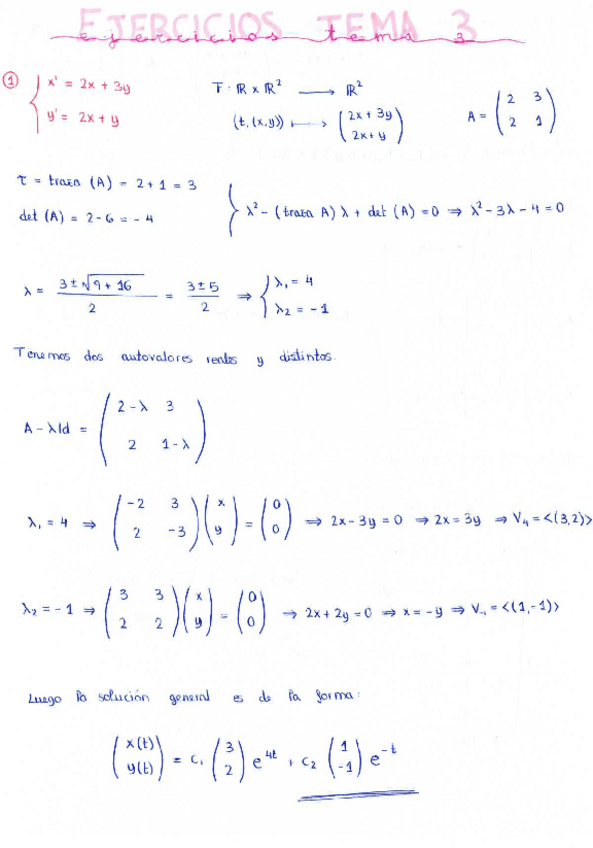 EJERCICIOS TEMA 3
ejercicios tema 3
① { x' = 2x + 3y
y' = 2x + y
F : ℝ x ℝ² ⟶ ℝ²
(t, (x,y)) ⟼ ( 2x + 3y
2x + y )
A = ( 2 3
2 1 )
τ = traza (A) = 2 + 1 = 3
det (A) = 2 - 6 = - 4
} λ² - (traza A) λ + det (A) = 0 ⇒ λ² - 3λ - 4 = 0
λ = (3 ± √9 + 16) / 2 = (3 ± 5) / 2 ⇒ { λ₁ = 4
λ₂ = -1
Tenemos dos autovalores reales y distintos.
A - λId = ( 2 - λ 3
2 1 - λ )
λ₁ = 4 ⇒ ( -2 3
2 -3 ) ( x
y ) = ( 0
0 ) ⇒ 2x - 3y = 0 ⇒ 2x = 3y ⇒ V₄ = <(3,2)>
λ₂ = -1 ⇒ ( 3 3
2 2 ) ( x
y ) = ( 0
0 ) ⇒ 2x + 2y = 0 ⇒ x = -y ⇒ V₋₁ = <(1,-1)>
Luego la solución general es de la forma:
( x(t)
y(t) ) = c₁ ( 3
2 ) e^4t + c₂ ( 1
-1 ) e^-t